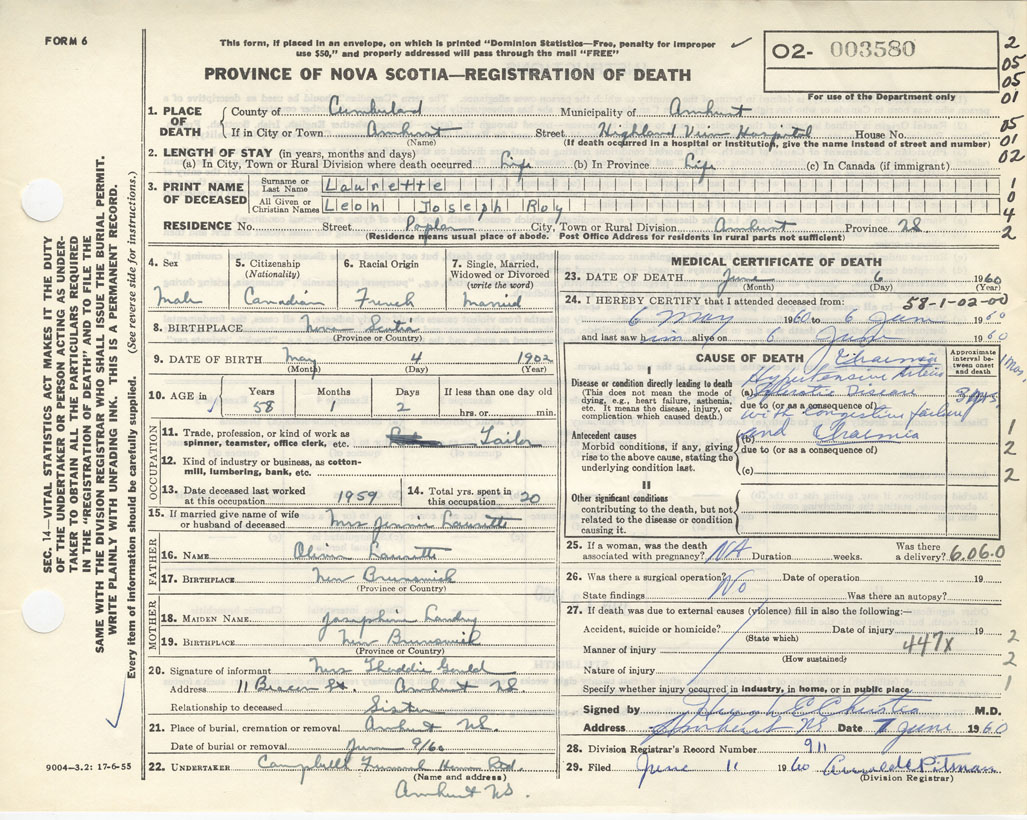 FORM 6
This form, if placed in an envelope, on which is printed "Dominion Statistics—Free, penalty for improper
use $50," and properly addressed will pass through the mail "FREE"
02- 003580
For use of the Department only
2
05
05
01
05
01
02
1
0
4
2
PROVINCE OF NOVA SCOTIA—REGISTRATION OF DEATH
1. PLACE OF DEATH
County of Cumberland Municipality of Amherst
If in City or Town Amherst Street Highland View Hospital House No.
(Name) (If death occurred in a hospital or institution, give the name instead of street and number)
2. LENGTH OF STAY (in years, months and days)
(a) In City, Town or Rural Division where death occurred Life (b) In Province Life (c) In Canada (if immigrant)
3. PRINT NAME OF DECEASED
Surname or Last Name Laurette
All Given or Christian Names Leon Joseph Roy
RESIDENCE No. Street Poplar City, Town or Rural Division Amherst Province N.S.
(Residence means usual place of abode. Post Office Address for residents in rural parts not sufficient)
4. Sex
Male
5. Citizenship
(Nationality)
Canadian
6. Racial Origin
French
7. Single, Married,
Widowed or Divorced
(write the word)
Married
8. BIRTHPLACE Nova Scotia
(Province or Country)
9. DATE OF BIRTH May 4 1902
(Month) (Day) (Year)
10. AGE in
Years Months Days If less than one day old
58 1 2 hrs. or min.
OCCUPATION
11. Trade, profession, or kind of work as
spinner, teamster, office clerk, etc. Tailor
12. Kind of industry or business, as cotton-
mill, lumbering, bank, etc.
13. Date deceased last worked
at this occupation 1959
14. Total yrs. spent in
this occupation 20
15. If married give name of wife
or husband of deceased Mrs Jennie Laurette
FATHER
16. NAME Laurette
17. BIRTHPLACE New Brunswick
(Province or Country)
MOTHER
18. MAIDEN NAME Josephine Landry
19. BIRTHPLACE New Brunswick
(Province or Country)
20. Signature of informant Mrs Gould
Address 11 Beacon St. Amherst N.S.
Relationship to deceased Sister
21. Place of burial, cremation or removal Amherst N.S.
Date of burial or removal June 9/60
22. UNDERTAKER Campbell Funeral Home Ltd.
(Name and address)
Amherst N.S.
MEDICAL CERTIFICATE OF DEATH
23. DATE OF DEATH June 6 1960
(Month) (Day) (Year)
24. I HEREBY CERTIFY that I attended deceased from: 58-1-02-00
6 May 1960 to 6 June 1960
and last saw him alive on 6 June 1960
CAUSE OF DEATH
Approximate interval between onset and death
I
Disease or condition directly leading to death
(This does not mean the mode of
dying, e.g., heart failure, asthenia,
etc. It means the disease, injury, or
complication which caused death.)
(a) Hypertensive
due to (or as a consequence of)
with congestive failure
Antecedent causes
Morbid conditions, if any, giving
rise to the above cause, stating the
underlying condition last.
(b) and
due to (or as a consequence of)
(c)
1
2
2
II
Other significant conditions
contributing to the death, but not
related to the disease or condition
causing it.
25. If a woman, was the death
associated with pregnancy? NA Duration weeks. Was there
a delivery? 6.06.0
26. Was there a surgical operation? No Date of operation 19
State findings Was there an autopsy?
27. If death was due to external causes (violence) fill in also the following:—
Accident, suicide or homicide? Date of injury 19
(State which)
Manner of injury 447x
(How sustained)
Nature of injury
2
2
1
Specify whether injury occurred in industry, in home, or in public place
Signed by Christie M.D.
Address Amherst NS Date 7 June 1960
28. Division Registrar's Record Number 911
29. Filed June 11 1960 Pitman
(Division Registrar)
SEC. 14—VITAL STATISTICS ACT MAKES IT THE DUTY
OF THE UNDERTAKER OR PERSON ACTING AS UNDER-
TAKER TO OBTAIN ALL THE PARTICULARS REQUIRED
IN THE "REGISTRATION OF DEATH" AND TO FILE THE
SAME WITH THE DIVISION REGISTRAR WHO SHALL ISSUE THE BURIAL PERMIT.
WRITE PLAINLY WITH UNFADING INK. THIS IS A PERMANENT RECORD.
Every item of information should be carefully supplied. (See reverse side for instructions.)
9004—3.2: 17-6-55